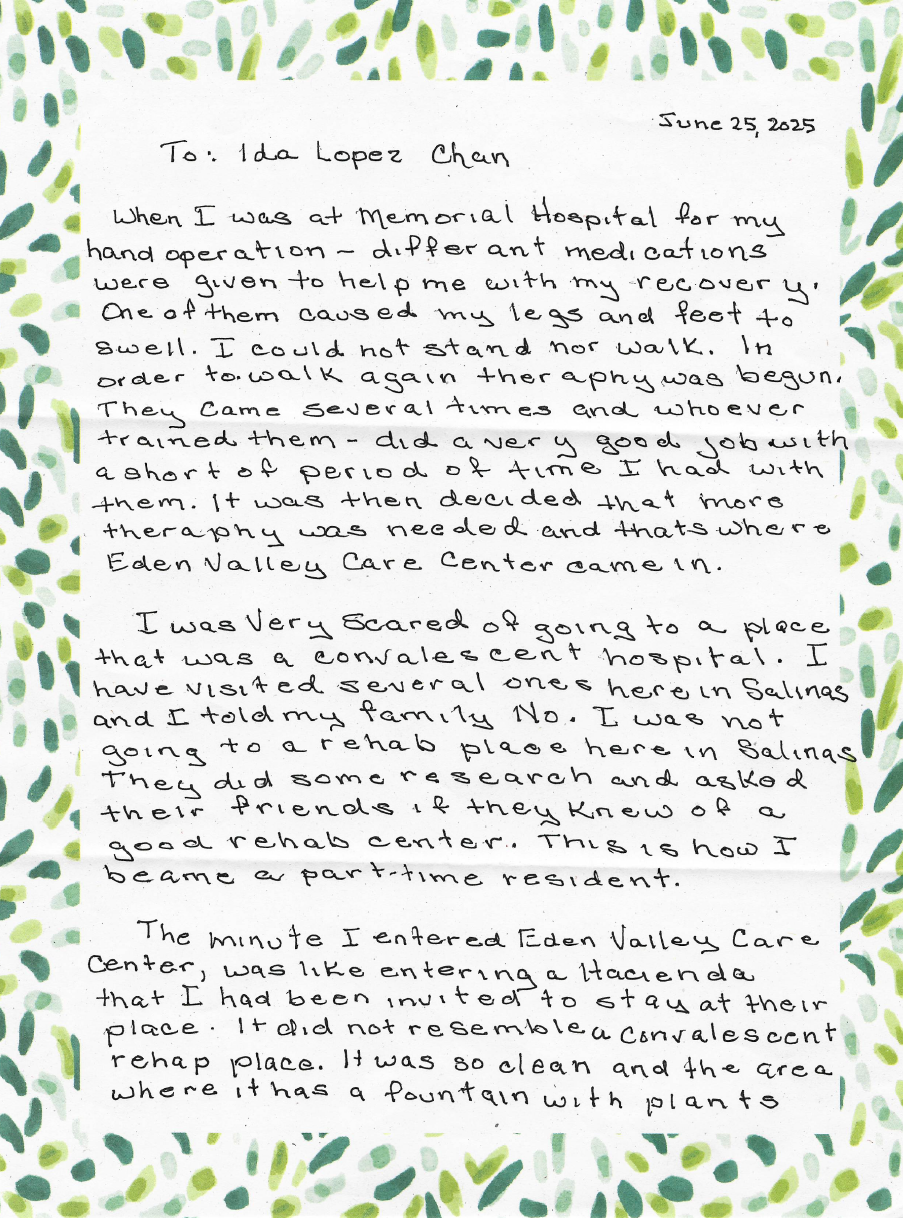 June 25, 2025
To: Ida Lopez Chan
When I was at Memorial Hospital for my
hand operation – differant medications
were given to help me with my recovery.
One of them caused my legs and feet to
swell. I could not stand nor walk. In
order to walk again theraphy was begun.
They came several times and whoever
trained them – did a very good job with
a short of period of time I had with
them. It was then decided that more
theraphy was needed and thats where
Eden Valley Care Center came in.
I was Very Scared of going to a place
that was a convalescent hospital. I
have visited several ones here in Salinas
and I told my family No. I was not
going to a rehab place here in Salinas
They did some research and asked
their friends if they knew of a
good rehab center. This is how I
beame a part-time resident.
The minute I entered Eden Valley Care
Center, was like entering a Hacienda
that I had been invited to stay at their
place. It did not resemble a convalescent
rehap place. It was so clean and the area
where it has a fountain with plants